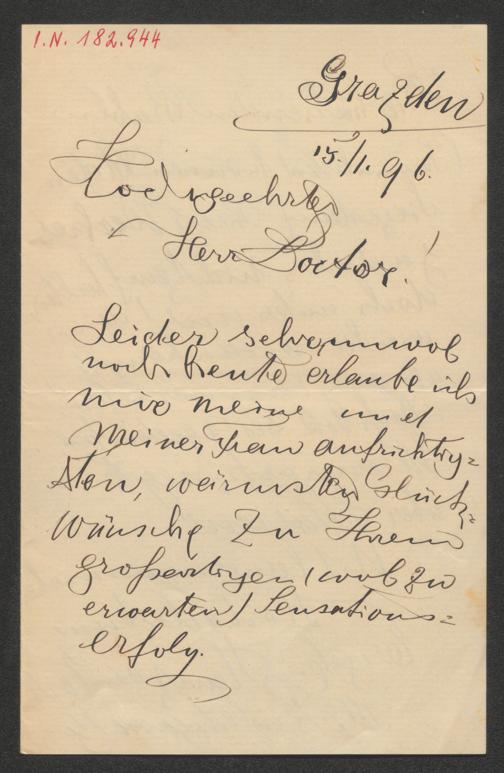 I.N. 182.944
Graz den
15./1. 96.
Hochgeehrter
Herr Doctor!
Leider sehr unwol
noch heute erlaube ich
mir meine und
meiner Frau aufrichtig-
sten, wärmsten Glück-
wünsche zu Ihrem
großartigen (wol zu
erwarten) Sensations-
erfolg.